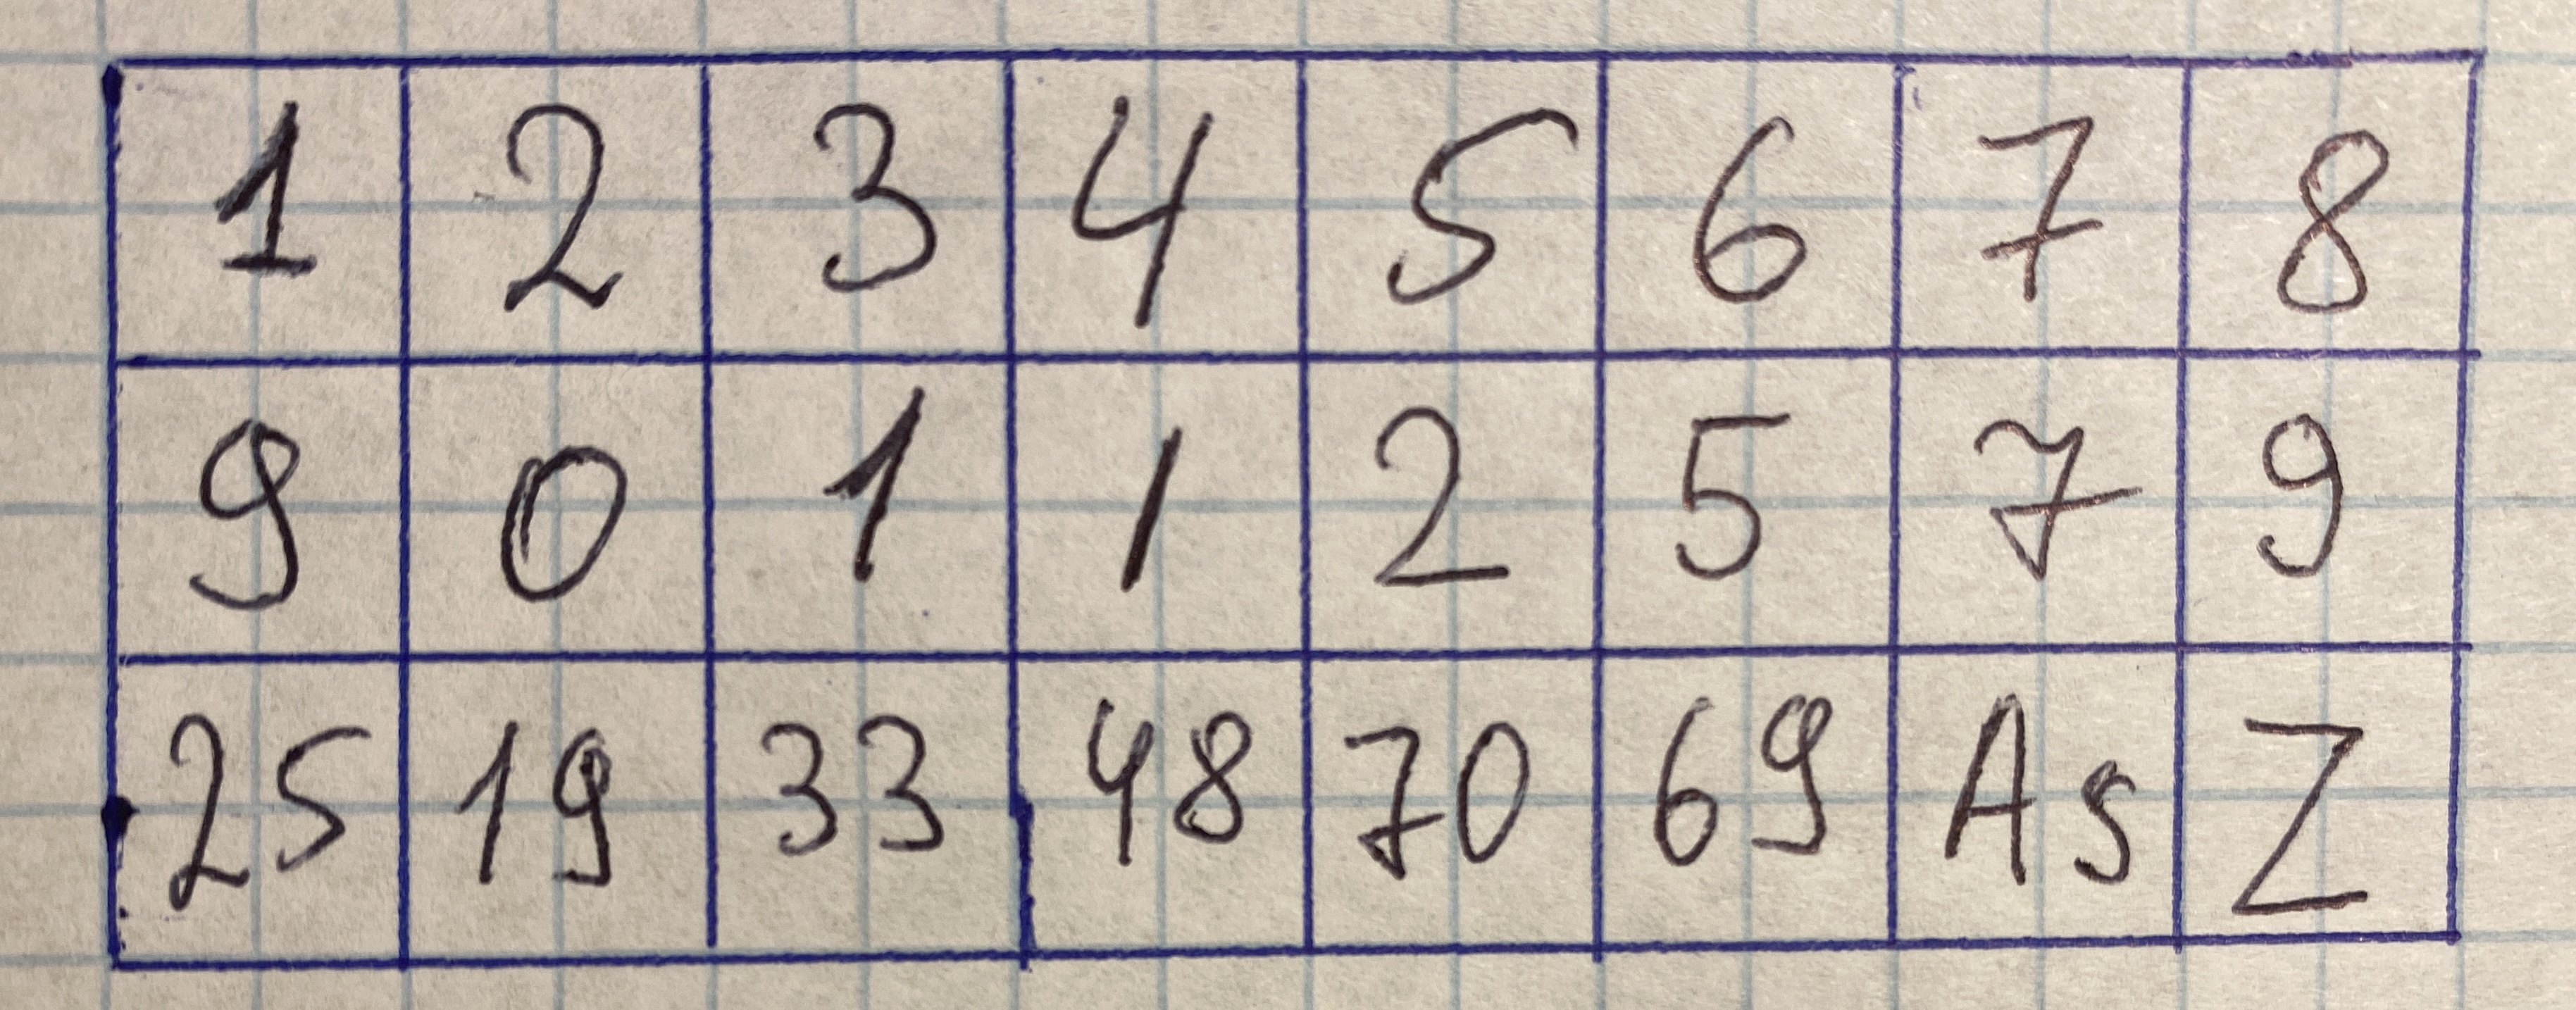 1 2 3 4 5 6 7 8
9 0 1 1 2 5 7 9
25 19 33 48 70 69 As Z